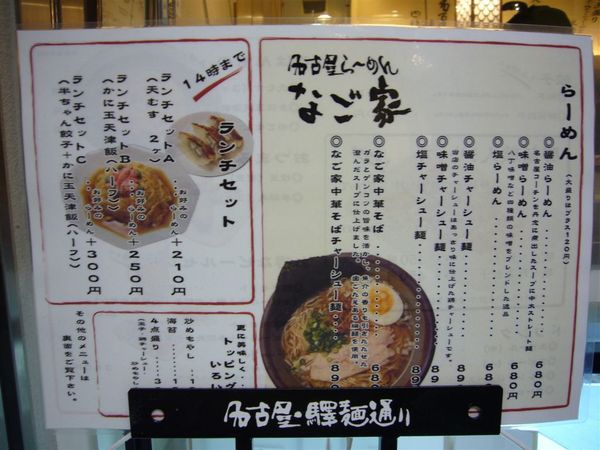 らーめん
（大盛りはプラス120円）
◎醤油らーめん 680円
名古屋コーチンを丹念に炊出したスープに中太ストレート麺
◎味噌らーめん 680円
八丁味噌など四種類の味噌をブレンドした逸品
◎塩らーめん 680円
◎醤油チャーシュー麺 89
当店のチャーシューはあっさり味に仕上げた鶏チャーシューです。
◎味噌チャーシュー麺 89
◎塩チャーシュー麺 89
名古屋らーめん
なご家
◎なご家中華そば 680
ガラとゲンコツの旨味を活かし、魚介の香りを引きたたせた
澄んだスープに仕上げました。歯ごたえある細麺を使用
◎なご家中華そばチャーシュー麺 890
14時まで
ランチセット
ランチセットA お好みのらーめん＋210円
（天むす 2ヶ）
ランチセットB お好みのらーめん＋250円
（かに玉天津飯（ハーフ）
ランチセットC お好みのらーめん＋300円
（半ちゃん餃子＋かに玉天津飯（ハーフ）
更に美味しく
トッピング
いろい
炒めもやし
海苔
4点盛り
（玉子・鶏チャーシュー・
炒めもや
その他のメニューは
裏面をご覧下さい。
名古屋・驛麺通り